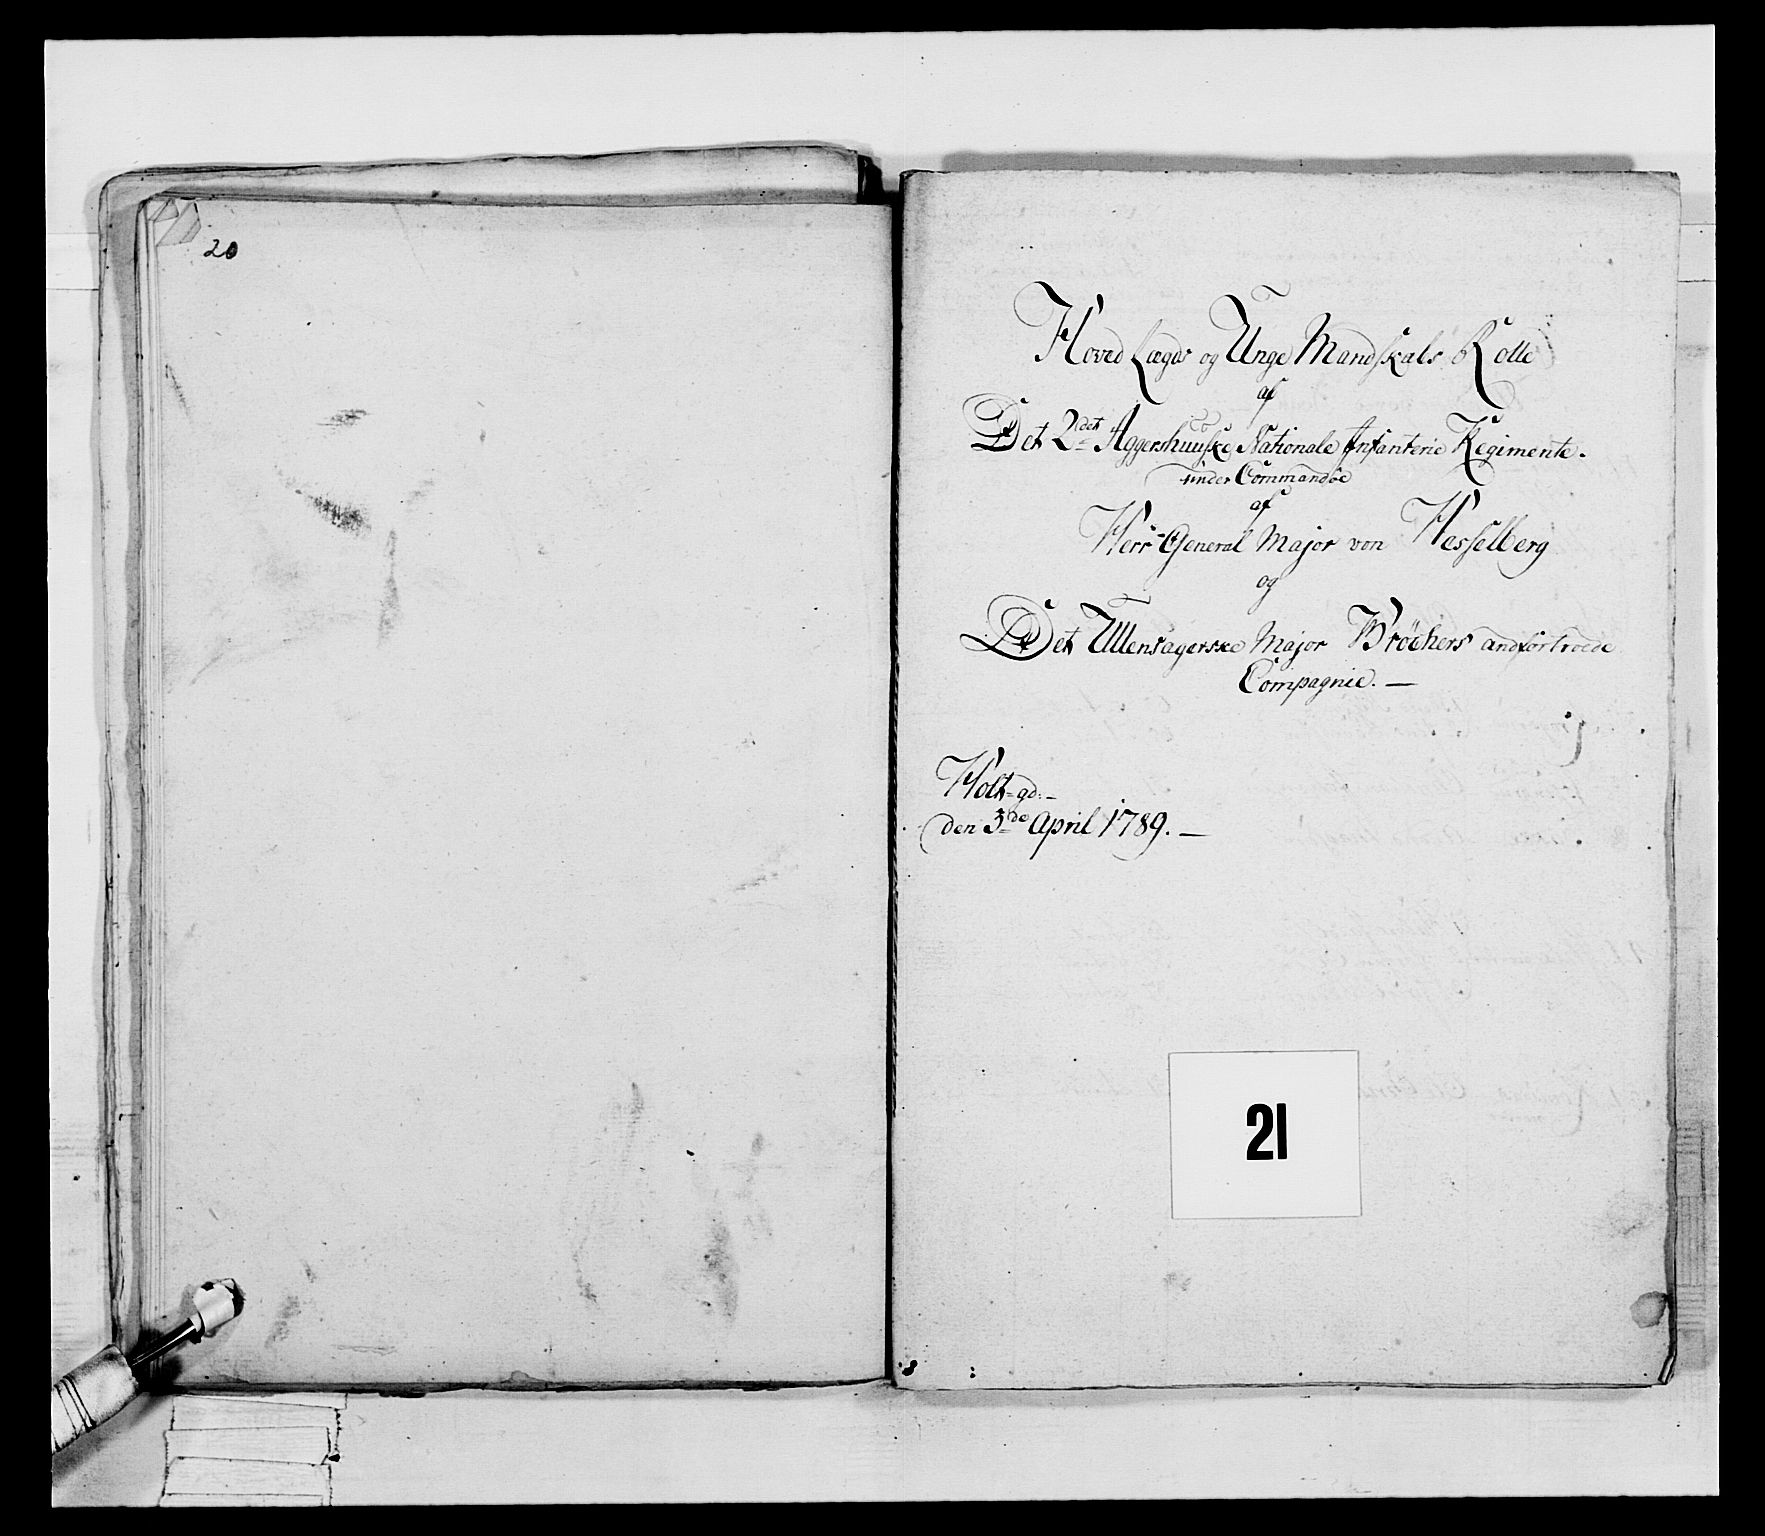 20
Hoved Lægds og Unge Mandskabs Rolle
af
Det 2det Aggershuuske Nationale Infanterie Regimente.
under Commandoe
af
Herr General Major von Hesselberg
og
Det Ullensagerske Major Bröchers andfortroede
Compagnie. —
Holt-gd: -
den 3de April 1789. —
21